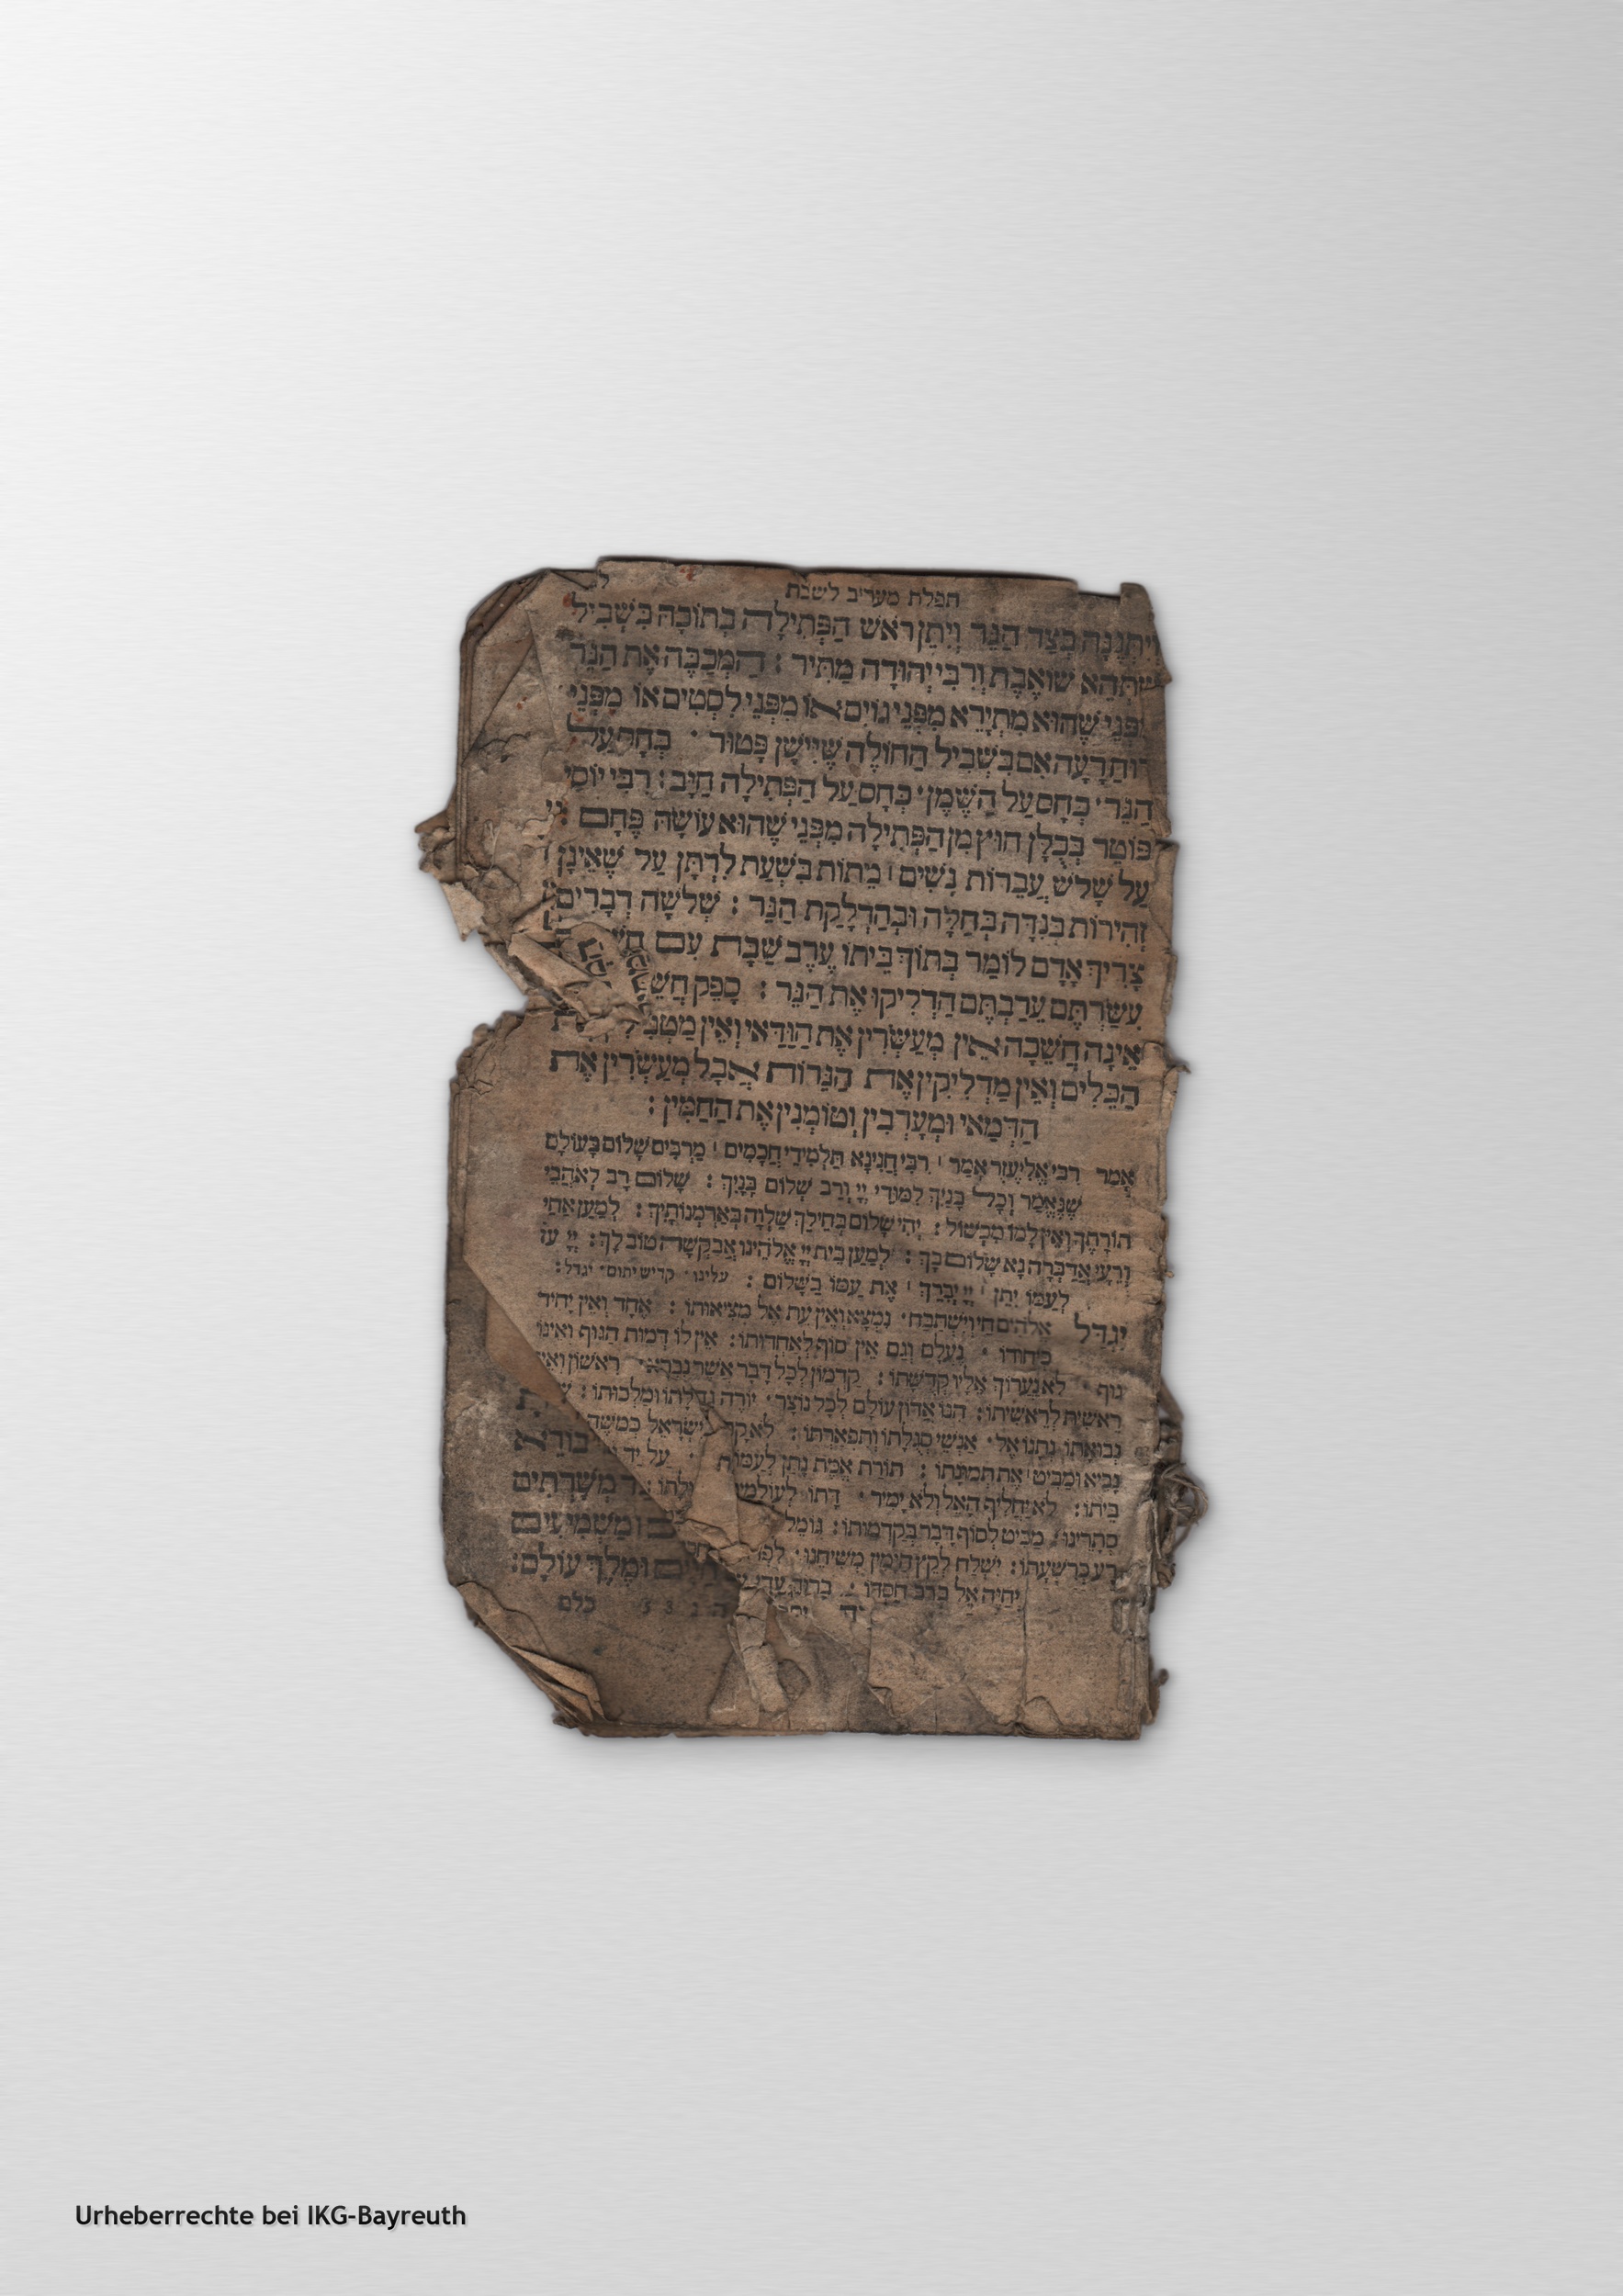 תפלת מעריב לשבת
יִתְּנֶנָּה בְצַד הַנֵּר וְיִתֵּן רֹאשׁ הַפְּתִילָה בְתוֹכָהּ בִּשְׁבִיל
שֶׁתְּהֵא שׁוֹאֶבֶת וְרִבִּי יְהוּדָה מַתִּיר : הַמְכַבֶּה אֶת הַנֵּר
מִפְּנֵי שֶׁהוּא מִתְיָרֵא מִפְּנֵי גוֹיִם אוֹ מִפְּנֵי לִסְטִים אוֹ מִפְּנֵי
רוּחַ רָעָה אִם בִּשְׁבִיל הַחוֹלֶה שֶׁיִּישָׁן פָּטוּר · כְּחָס עַל
הַנֵּר · כְּחָס עַל הַשֶּׁמֶן · כְּחָס עַל הַפְּתִילָה חַיָּב : רַבִּי יוֹסֵי
פּוֹטֵר בְּכֻלָּן חוּץ מִן הַפְּתִילָה מִפְּנֵי שֶׁהוּא עוֹשָׂהּ פֶּחָם :
עַל שָׁלֹשׁ עֲבֵרוֹת נָשִׁים מֵתוֹת בִּשְׁעַת לֵדָתָן עַל שֶׁאֵינָן
זְהִירוֹת בְּנִדָּה בְּחַלָּה וּבְהַדְלָקַת הַנֵּר : שְׁלֹשָׁה דְבָרִים
צָרִיךְ אָדָם לוֹמַר בְּתוֹךְ בֵּיתוֹ עֶרֶב שַׁבָּת עִם
עִשַּׂרְתֶּם עֵרַבְתֶּם הַדְלִיקוּ אֶת הַנֵּר : סָפֵק
אֵינָהּ חֲשֵׁכָה אֵין מְעַשְּׂרִין אֶת הַוַּדַּאי וְאֵין
הַכֵּלִים וְאֵין מַדְלִיקִין אֶת הַנֵּרוֹת אֲבָל מְעַשְּׂרִין אֶת
הַדְּמַאי וּמְעָרְבִין וְטוֹמְנִין אֶת הַחַמִּין :
אָמַר רִבִּי אֶלְעָזָר אָמַר רִבִּי חֲנִינָא תַּלְמִידֵי חֲכָמִים מַרְבִּים שָׁלוֹם בָּעוֹלָם
שֶׁנֶּאֱמַר וְכָל בָּנַיִךְ לִמּוּדֵי יְיָ וְרַב שְׁלוֹם בָּנָיִךְ : שָׁלוֹם רָב לְאֹהֲבֵי
תוֹרָתֶךָ וְאֵין לָמוֹ מִכְשׁוֹל : יְהִי שָׁלוֹם בְּחֵילֵךְ שַׁלְוָה בְּאַרְמְנוֹתָיִךְ : לְמַעַן אַחַי
וְרֵעָי אֲדַבְּרָה נָּא שָׁלוֹם בָּךְ : לְמַעַן בֵּית יְיָ אֱלֹהֵינוּ אֲבַקְשָׁה טוֹב לָךְ : יְיָ עֹז
לְעַמּוֹ יִתֵּן יְיָ יְבָרֵךְ אֶת עַמּוֹ בַשָּׁלוֹם : עלינו · קדיש יתום · יגדל :
יִגְדַּל אֱלֹהִים חַי וְיִשְׁתַּבַּח · נִמְצָא וְאֵין עֵת אֶל מְצִיאוּתוֹ : אֶחָד וְאֵין יָחִיד
כְּיִחוּדוֹ · נֶעְלָם וְגַם אֵין סוֹף לְאַחְדוּתוֹ : אֵין לוֹ דְמוּת הַגּוּף וְאֵינוֹ
גוּף · לֹא נַעֲרוֹךְ אֵלָיו קְדֻשָּׁתוֹ : קַדְמוֹן לְכָל דָּבָר אֲשֶׁר נִבְרָא · רִאשׁוֹן וְאֵין
רֵאשִׁית לְרֵאשִׁיתוֹ : הִנּוֹ אֲדוֹן עוֹלָם לְכָל נוֹצָר · יוֹרֶה גְדֻלָּתוֹ וּמַלְכוּתוֹ :
נְבוּאָתוֹ נְתָנוֹ אֶל · אַנְשֵׁי סְגֻלָּתוֹ וְתִפְאַרְתּוֹ : לֹא קָם יִשְׂרָאֵל כְּמֹשֶׁה
נָבִיא וּמַבִּיט אֶת תְּמוּנָתוֹ : תּוֹרַת אֱמֶת נָתַן לְעַמּוֹ · עַל יַד
בֵּיתוֹ : לֹא יַחֲלִיף הָאֵל וְלֹא יָמִיר · דָּתוֹ לְעוֹלָמִים
סְתָרֵינוּ · מַבִּיט לְסוֹף דָּבָר בְּקַדְמוּתוֹ : גּוֹמֵל
רַע כְּרִשְׁעָתוֹ : יִשְׁלַח לְקֵץ הַיָּמִין מְשִׁיחֵנוּ ·
יְחַיֶּה אֵל בְּרֹב חַסְדּוֹ : בָּרוּךְ עֲדֵי
בּוֹרֵא
מְשָׁרְתִים
וּמַשְׁמִיעִים
וּמֶלֶךְ עוֹלָם :
כלם
Urheberrechte bei IKG-Bayreuth